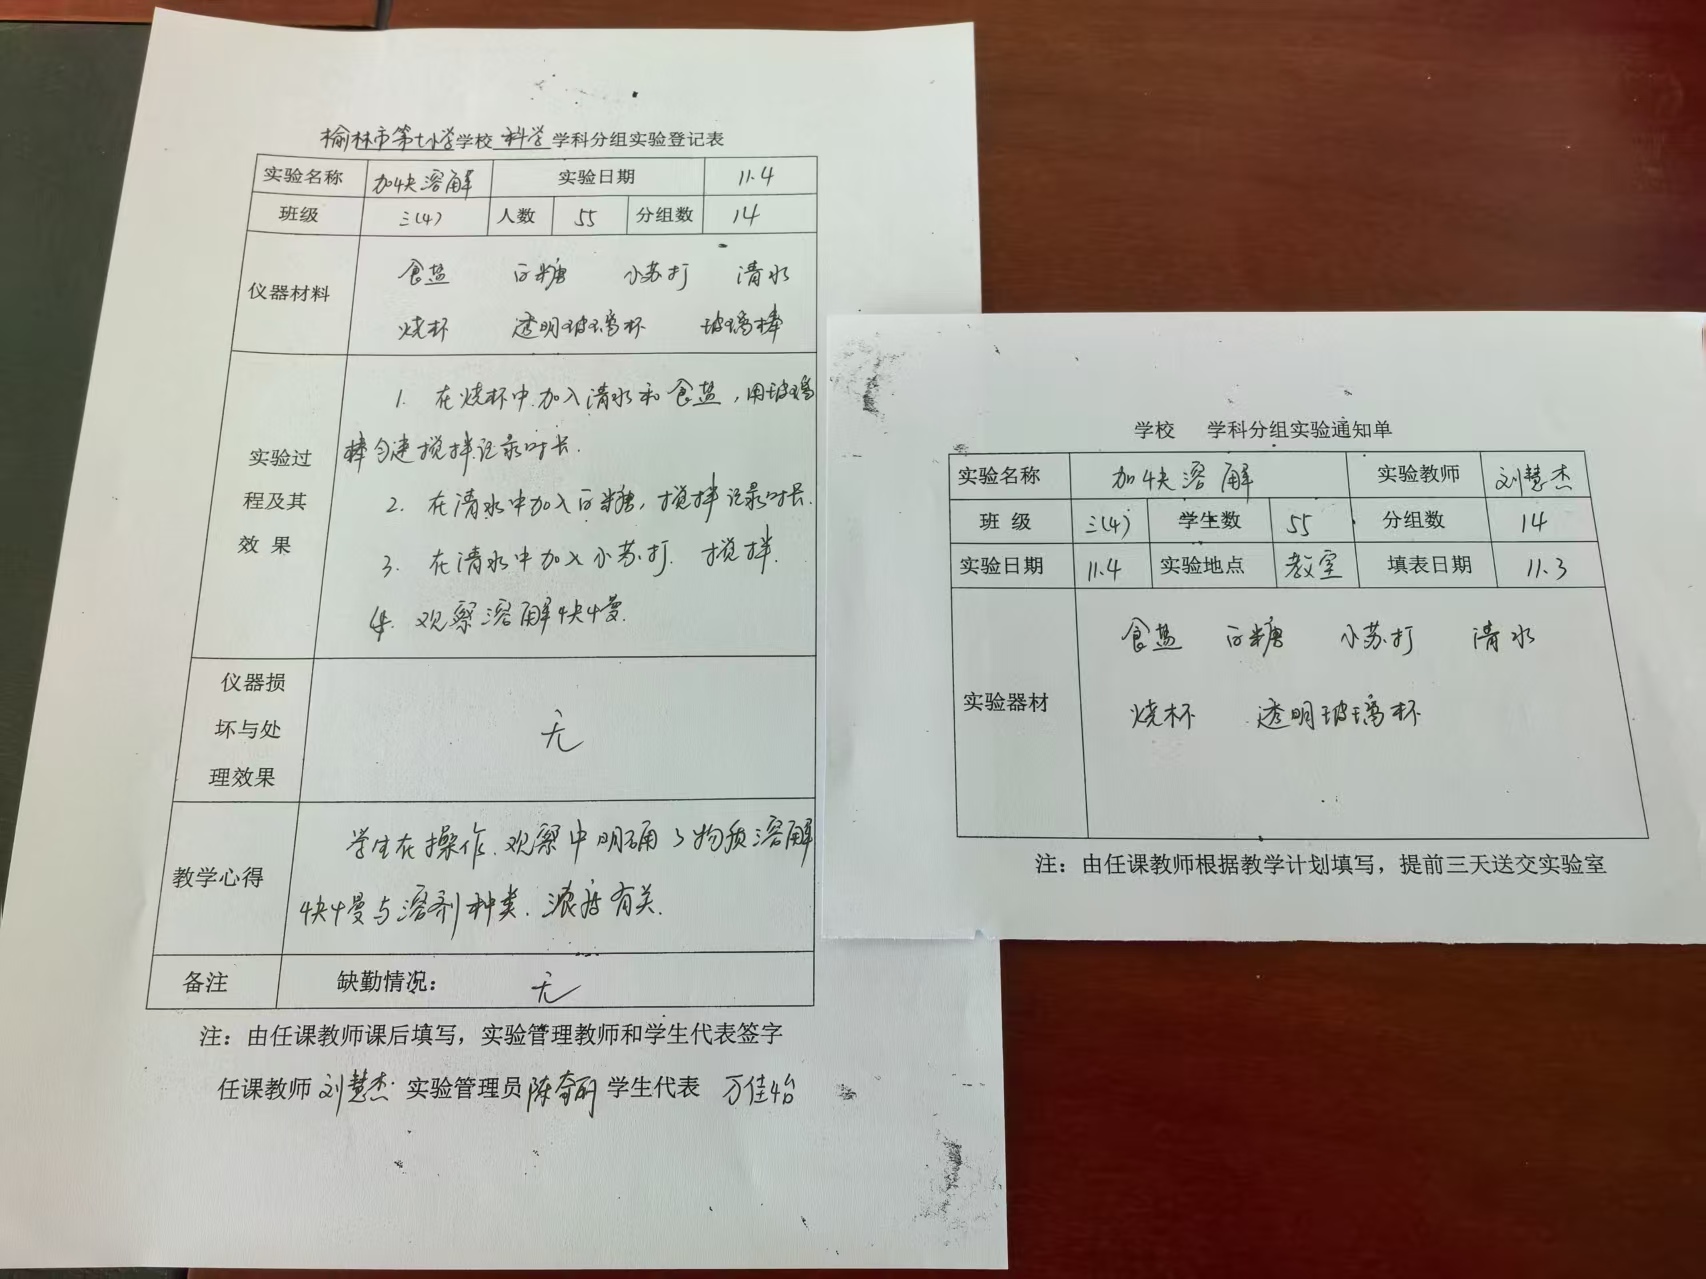 榆林市第七小学学校 科学 学科分组实验登记表
实验名称 加快溶解 实验日期 11.4
班级 三(4) 人数 55 分组数 14
仪器材料
食盐 白糖 小苏打 清水
烧杯 透明玻璃杯 玻璃棒
实验过程及其效果
1. 在烧杯中加入清水和食盐，用玻璃
棒匀速搅拌记录时长.
2. 在清水中加入白糖，搅拌记录时长.
3. 在清水中加入小苏打. 搅拌.
4. 观察溶解快慢.
仪器损
坏与处
理效果
无
教学心得
学生在操作.观察中明确了物质溶解
快慢与溶剂种类.浓度有关.
备注 缺勤情况： 无
注：由任课教师课后填写，实验管理教师和学生代表签字
任课教师 刘慧杰 实验管理员 陈 丽 学生代表 万佳怡
学校 学科分组实验通知单
实验名称 加快溶解 实验教师 刘慧杰
班级 三(4) 学生数 55 分组数 14
实验日期 11.4 实验地点 教室 填表日期 11.3
实验器材
食盐 白糖 小苏打 清水
烧杯 透明玻璃杯
注：由任课教师根据教学计划填写，提前三天送交实验室